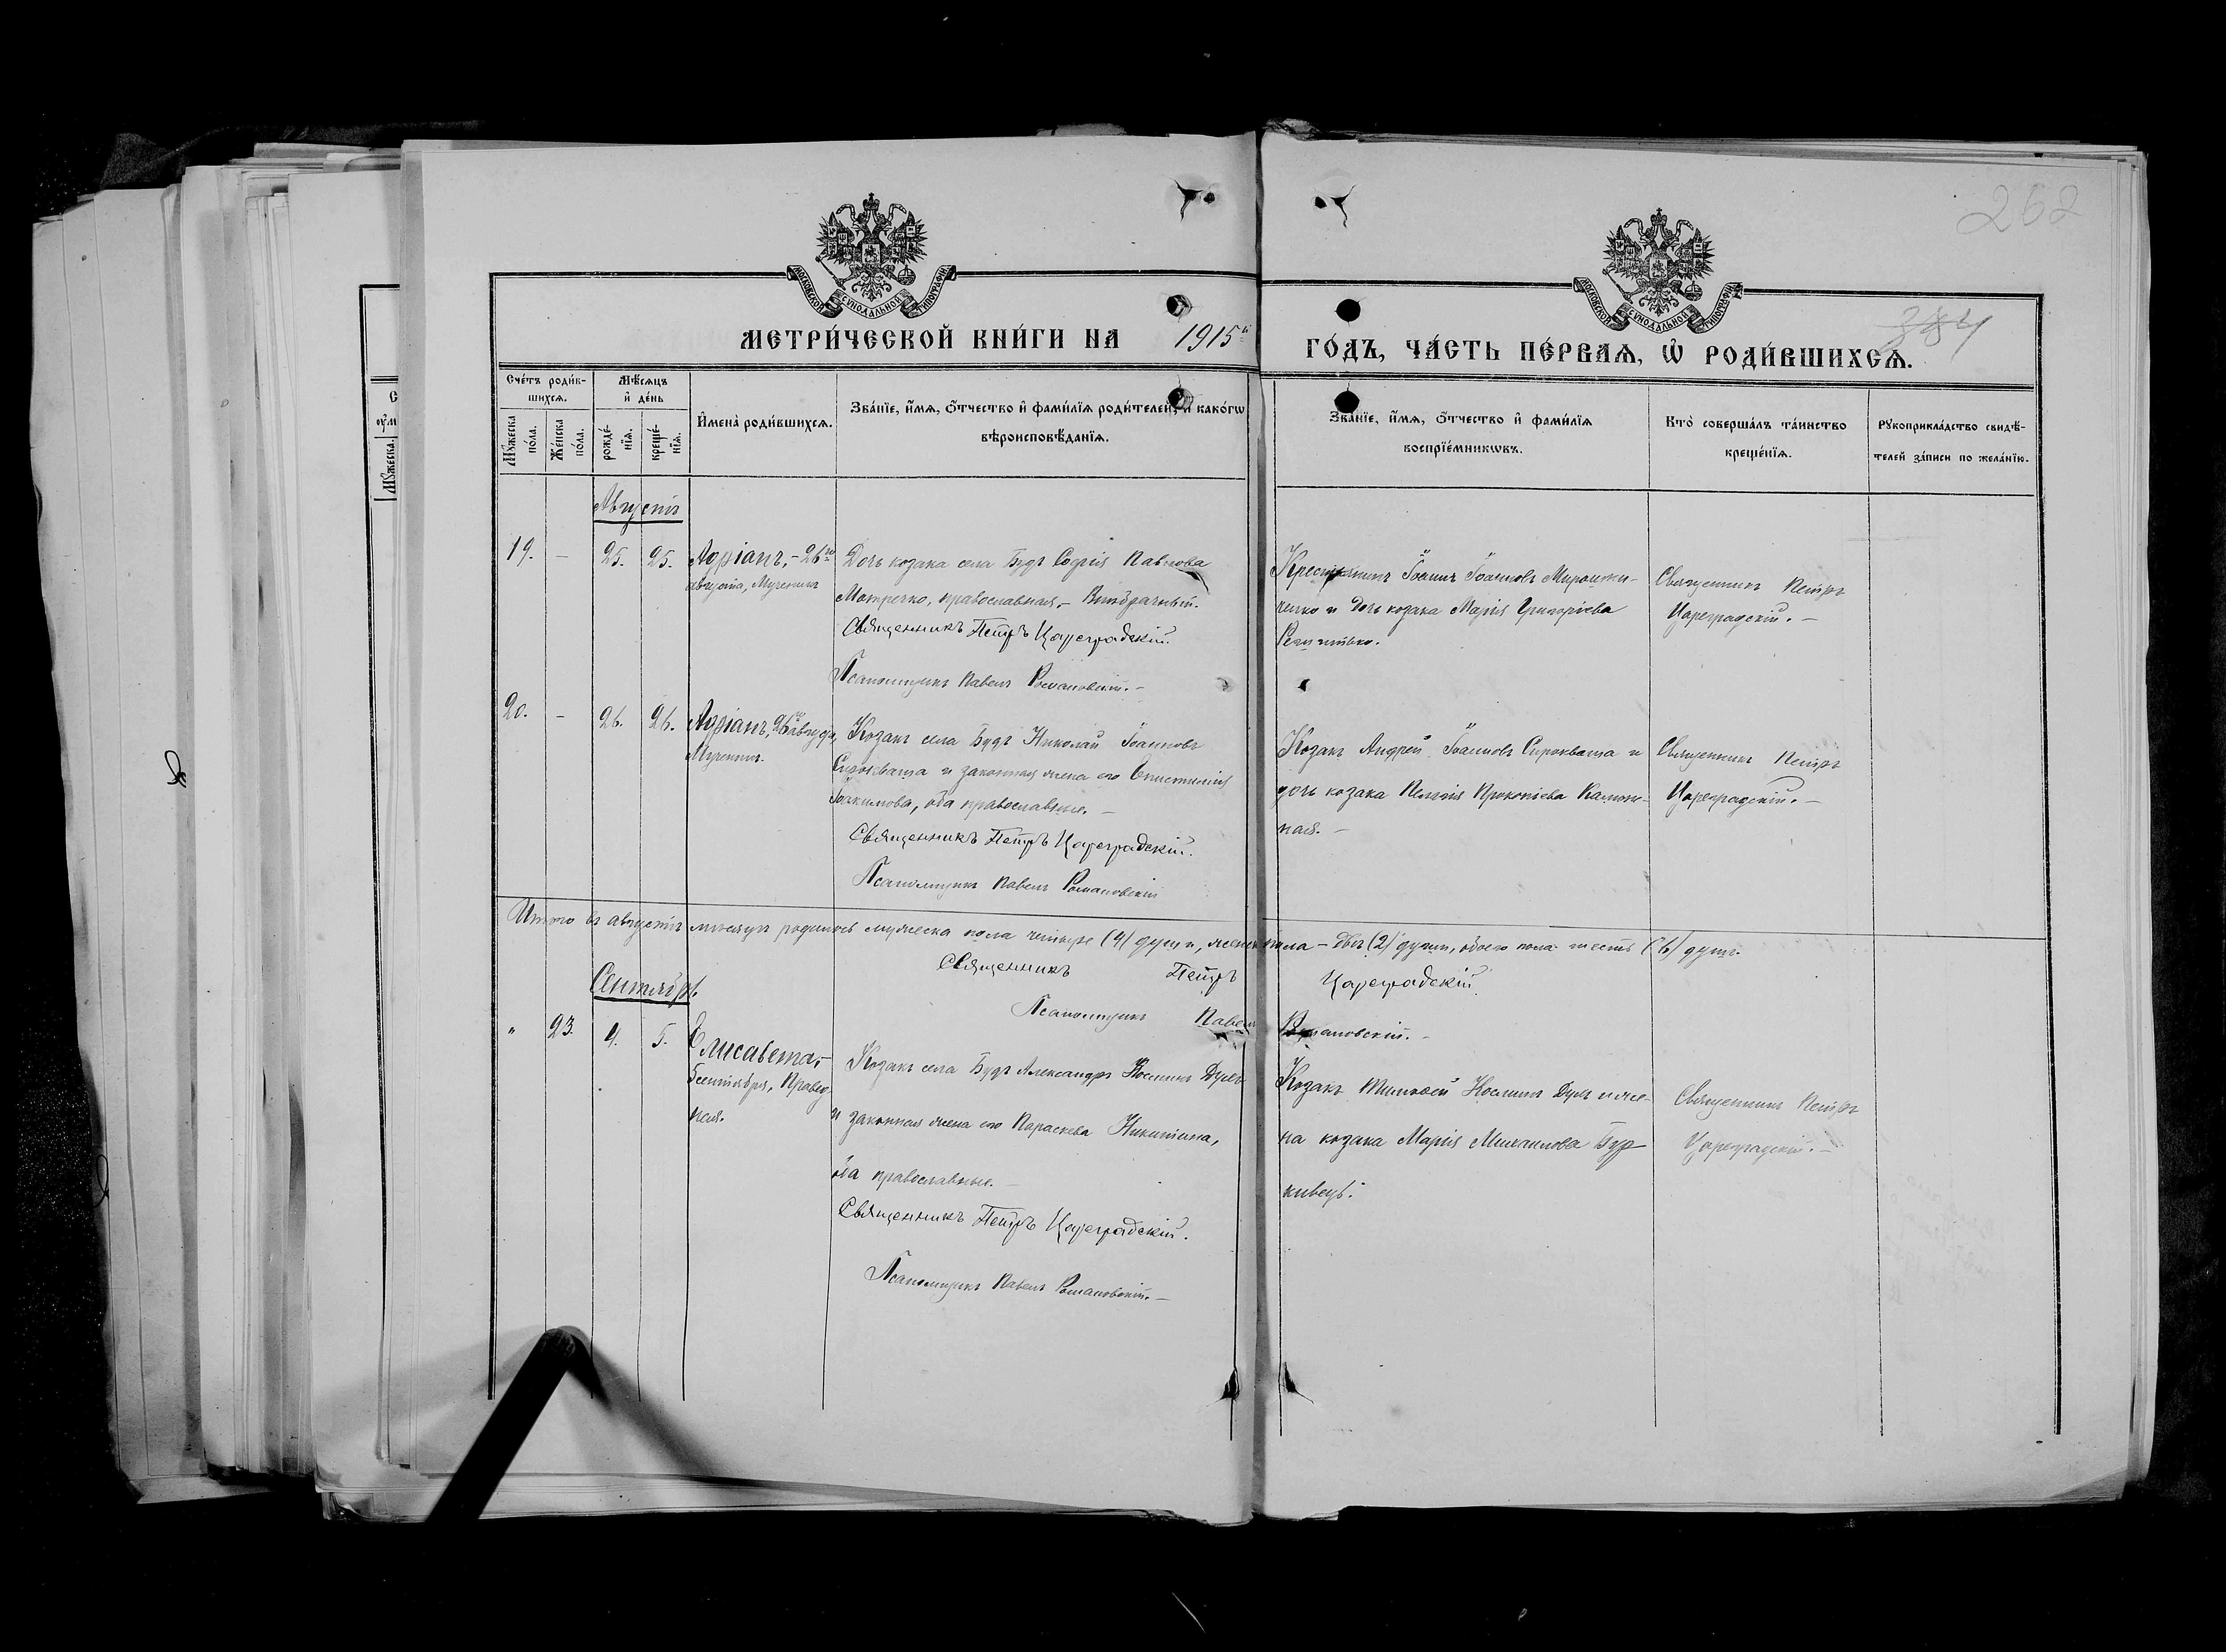 262
МОСКОВСКОЙ СѴНОДАЛЬНОЙ ТИПОГРАФІИ
МОСКОВСКОЙ СѴНОДАЛЬНОЙ ТИПОГРАФІИ
МЕТРИ́ЧЕСКОЙ КНИ́ГИ НА 1915й ГО́ДЪ, ЧА́СТЬ ПЕ́РВАѦ, Ѡ РОДИ́ВШИХСѦ.
Сче́тъ роди́в-
шихсѧ.
Мѣ́сѧцъ
и де́нь
Мꙋ́жеска
по́ла.
Же́нска
по́ла.
рожде́-
нїѧ.
креще́-
нїѧ.
Имена̀ роди́вшихсѧ.
Зва́нїе, и́мѧ, о́тчество и фами́лїѧ роди́телей, и како́гѡ
вѣроисповѣ́данїѧ.
Зва́нїе, и́мѧ, о́тчество и фами́лїѧ
воспрїе́мникѡвъ.
Кто̀ соверша́лъ та́инство
креще́нїѧ.
Рꙋкоприкла́дство свидѣ́-
телей за́писи по жела́нїю.
Августъ
19. – 25. 25. Адріанъ, – 26го
августа, Мученикъ
Дочь козака села Будъ Софія Павлова
православная, –
Священникъ Петръ Цареградскій.
Псаломщикъ Павелъ Романовскій. –
Крестьянинъ Іоаннъ Іоанновъ Мирошни-
ченко и дочь козака Марія Григоріева
Священникъ Петръ
Цареградскій. –
20. – 26. 26. Адріанъ, 26го августа,
Мученикъ.
Козакъ села Будъ Николай Іоанновъ
Сыроваша и законная жена его
Іоакимова, оба православные. –
Священникъ Петръ Цареградскій.
Псаломщикъ Павелъ Романовскій
Козакъ Андрей Іоанновъ и
дочь козака Пелагія Прокопіева
ная. –
Священникъ Петръ
Цареградскій. –
Итого въ августѣ мѣсяцѣ родилось мужеска пола четыре (4) души, женска пола – двѣ (2) души, обоего пола шесть (6) душъ.
Священникъ Петръ Цареградскій
Псаломщикъ Павелъ Романовскій. –
Сентябрь.
" 23. 4. 5. Елисавета, –
5 сентября, Правед-
ная.
Козакъ села Будъ Александръ Косминъ
и законная жена его Параскева Никитина,
оба православные. –
Священникъ Петръ Цареградскій.
Псаломщикъ Павелъ Романовскій. –
Козакъ Тимофей Косминъ и же-
на козака Марія Михаилова Бур-
Священникъ Петръ
Цареградскій. –